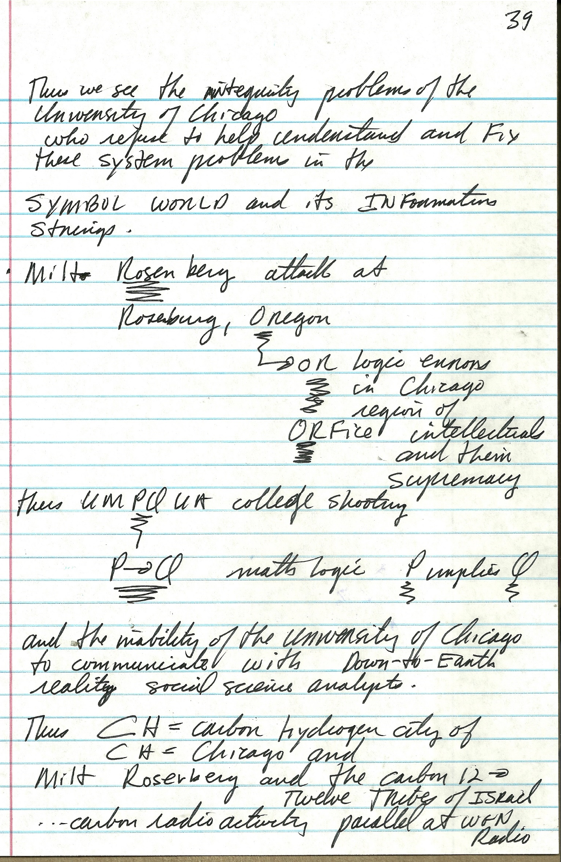 39
Thus we see the integuity problems of the
University of Chicago
who refuse to help understand and Fix
these system problems in the
SYMBOL WORLD and its INFormation
Strings.
Milt Rosenberg attack at
Roseburg, Oregon
OR logic errors
in Chicago
region of
ORFice intellectuals
and their
supremacy
thus UMPQUA college shooting
P→Q math logic P implies Q
and the inability of the University of Chicago
to communicate with Down-to-Earth
reality social science analysts.
Thus CH = carbon hydrogen city of
CH = Chicago and
Milt Rosenberg and the carbon 12→
Twelve Tribes of ISRael
...carbon radioactivity parallel at WGN
Radio